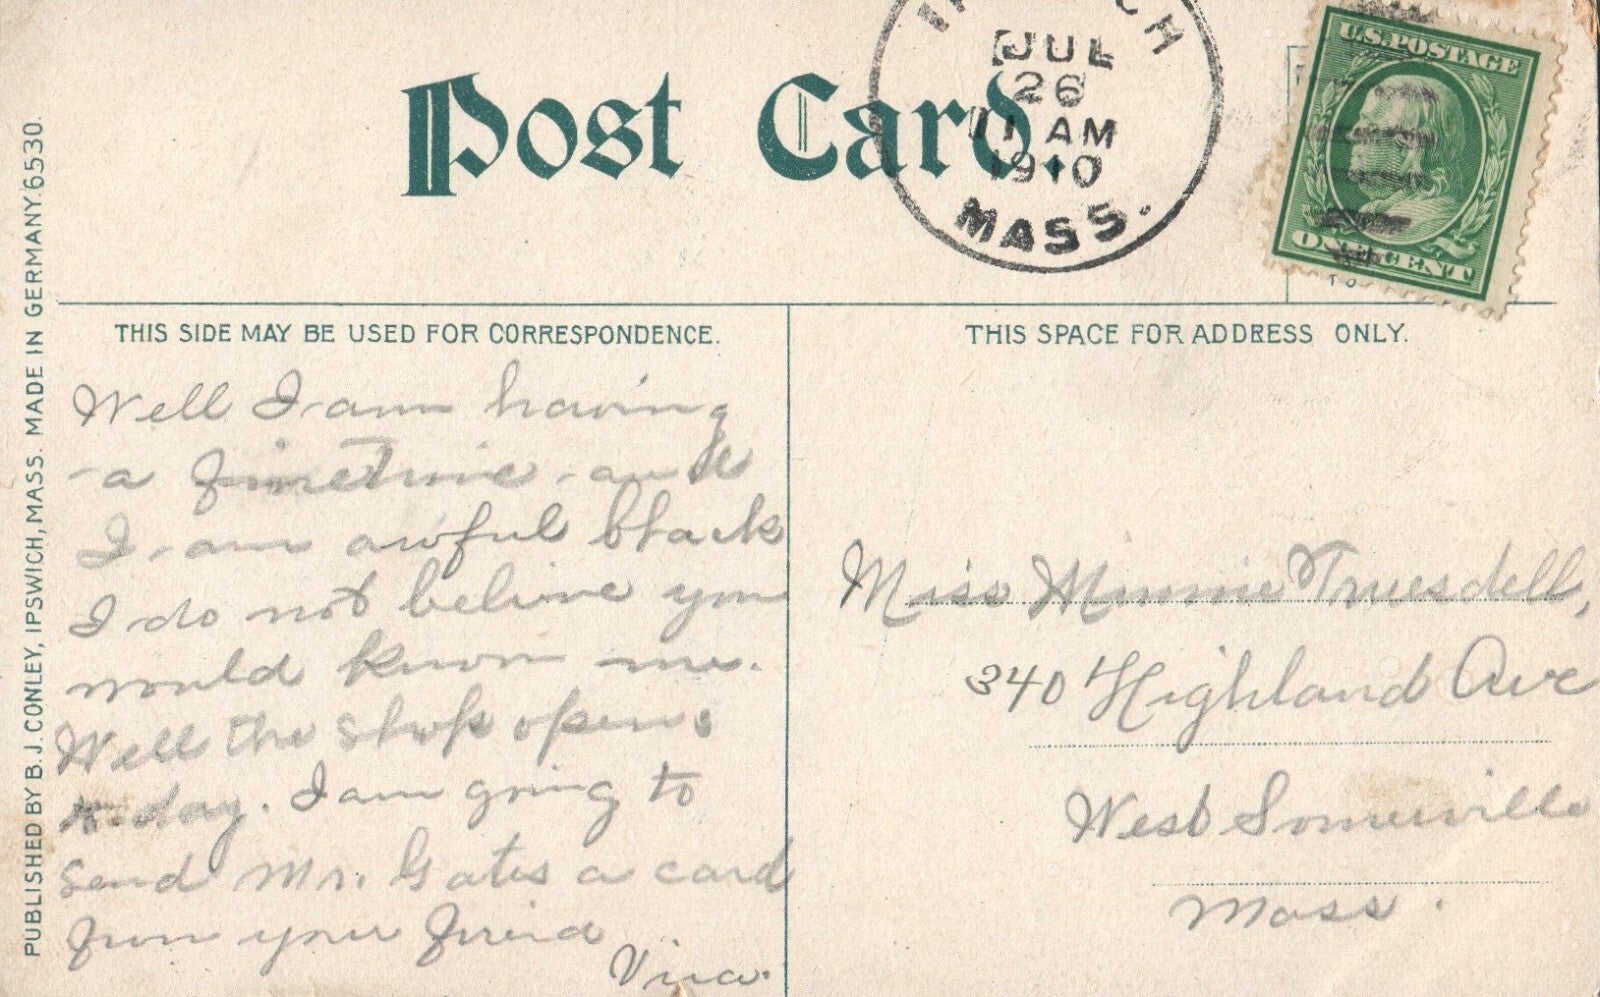 Post Card.
JUL
26
11 AM
1910
MASS.
U.S.POSTAGE
ONE CENT
PUBLISHED BY B.J.CONLEY, IPSWICH, MASS. MADE IN GERMANY.6530.
THIS SIDE MAY BE USED FOR CORRESPONDENCE.
Well I am having
a fine time and
I am awful black
I do not believe you
would know me.
Well the shop opens
to-day. I am going to
send Mr. Gates a card
from your friend
THIS SPACE FOR ADDRESS ONLY.
Miss Minnie Truesdell,
340 Highland Ave
West Somerville
Mass.